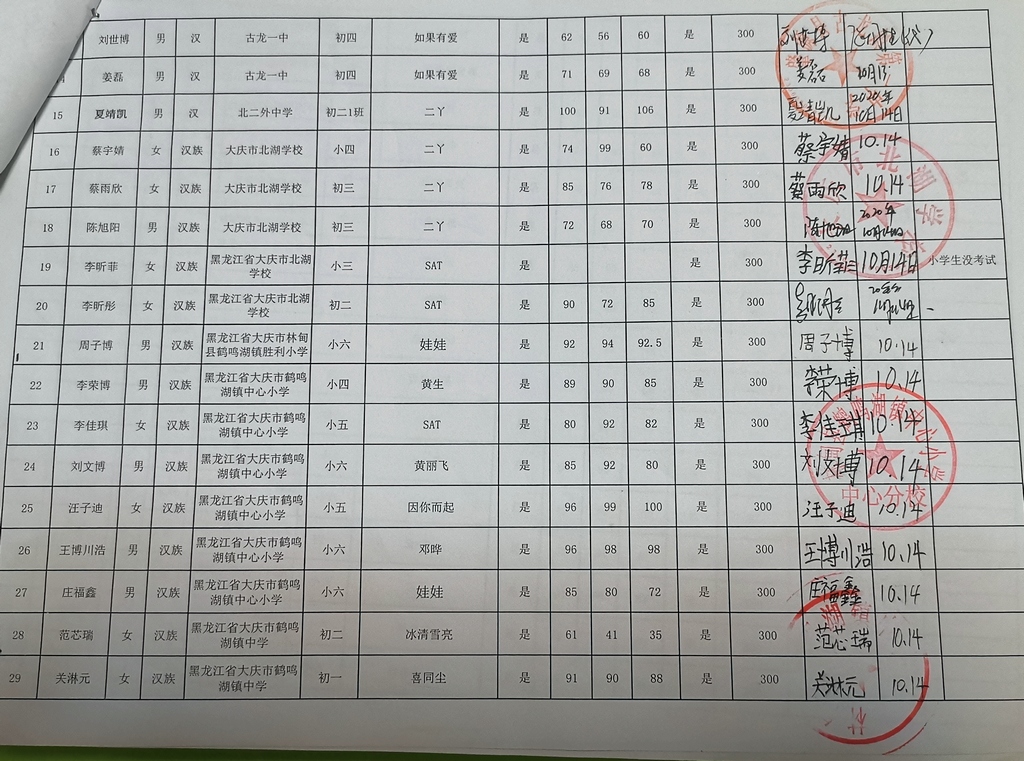 刘世博 男 汉 古龙一中 初四 如果有爱 是 62 56 60 是 300
姜磊 男 汉 古龙一中 初四 如果有爱 是 71 69 68 是 300 姜磊
15 夏靖凯 男 汉 北二外中学 初二1班 二丫 是 100 91 106 是 300 夏靖凯 2020年10月14日
16 蔡宇婧 女 汉族 大庆市北湖学校 小四 二丫 是 74 99 60 是 300 蔡宇婧 10.14
17 蔡雨欣 女 汉族 大庆市北湖学校 初三 二丫 是 85 76 78 是 300 蔡雨欣 10.14
18 陈旭阳 男 汉族 大庆市北湖学校 初三 二丫 是 72 68 70 是 300 陈旭阳 2020年
19 李昕菲 女 汉族 黑龙江省大庆市北湖学校 小三 SAT 是 是 300 李昕菲 10月14日 小学生没考试
20 李昕彤 女 汉族 黑龙江省大庆市北湖学校 初二 SAT 是 90 72 85 是 300
21 周子博 男 汉族 黑龙江省大庆市林甸县鹤鸣湖镇胜利小学 小六 娃娃 是 92 94 92.5 是 300 周子博 10.14
22 李荣博 男 汉族 黑龙江省大庆市鹤鸣湖镇中心小学 小四 黄生 是 89 90 85 是 300 李荣博 10.14
23 李佳琪 女 汉族 黑龙江省大庆市鹤鸣湖镇中心小学 小五 SAT 是 80 92 82 是 300 李佳琪 10.14
24 刘文博 男 汉族 黑龙江省大庆市鹤鸣湖镇中心小学 小六 黄丽飞 是 85 92 80 是 300 刘文博 10.14
25 汪子迪 女 汉族 黑龙江省大庆市鹤鸣湖镇中心小学 小五 因你而起 是 96 99 100 是 300 汪子迪 10.14
中心分校
26 王博川浩 男 汉族 黑龙江省大庆市鹤鸣湖镇中心小学 小六 邓晔 是 96 98 98 是 300 王博川浩 10.14
27 庄福鑫 男 汉族 黑龙江省大庆市鹤鸣湖镇中心小学 小六 娃娃 是 85 80 72 是 300 庄福鑫 10.14
28 范芯瑞 女 汉族 黑龙江省大庆市鹤鸣湖镇中学 初二 冰清雪亮 是 61 41 35 是 300 范芯瑞 10.14
29 关淋元 女 汉族 黑龙江省大庆市鹤鸣湖镇中学 初一 喜同尘 是 91 90 88 是 300 关淋元 10.14